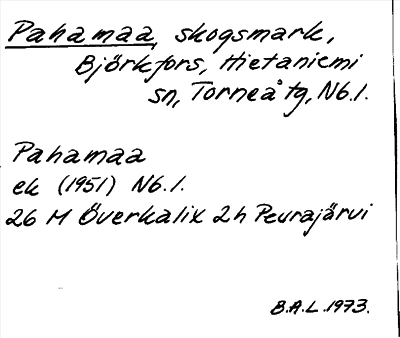 Pahamaa, skogsmark,
Björkfors, Hietaniemi
sn, Torneå tg, Nb.l.
Pahamaa
ek (1951) Nb.l.
26 M Överkalix 2h Peurajärvi
B.A.L. 1973.